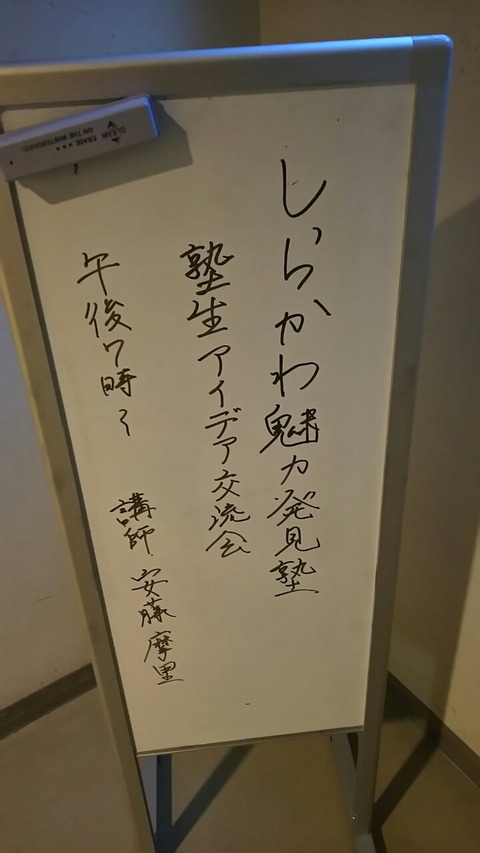 しらかわ魅力発見塾
塾生アイデア交流会
午後7時〜
講師 安藤摩里
CLEAN ERASE
ON THE WHITEBOARD